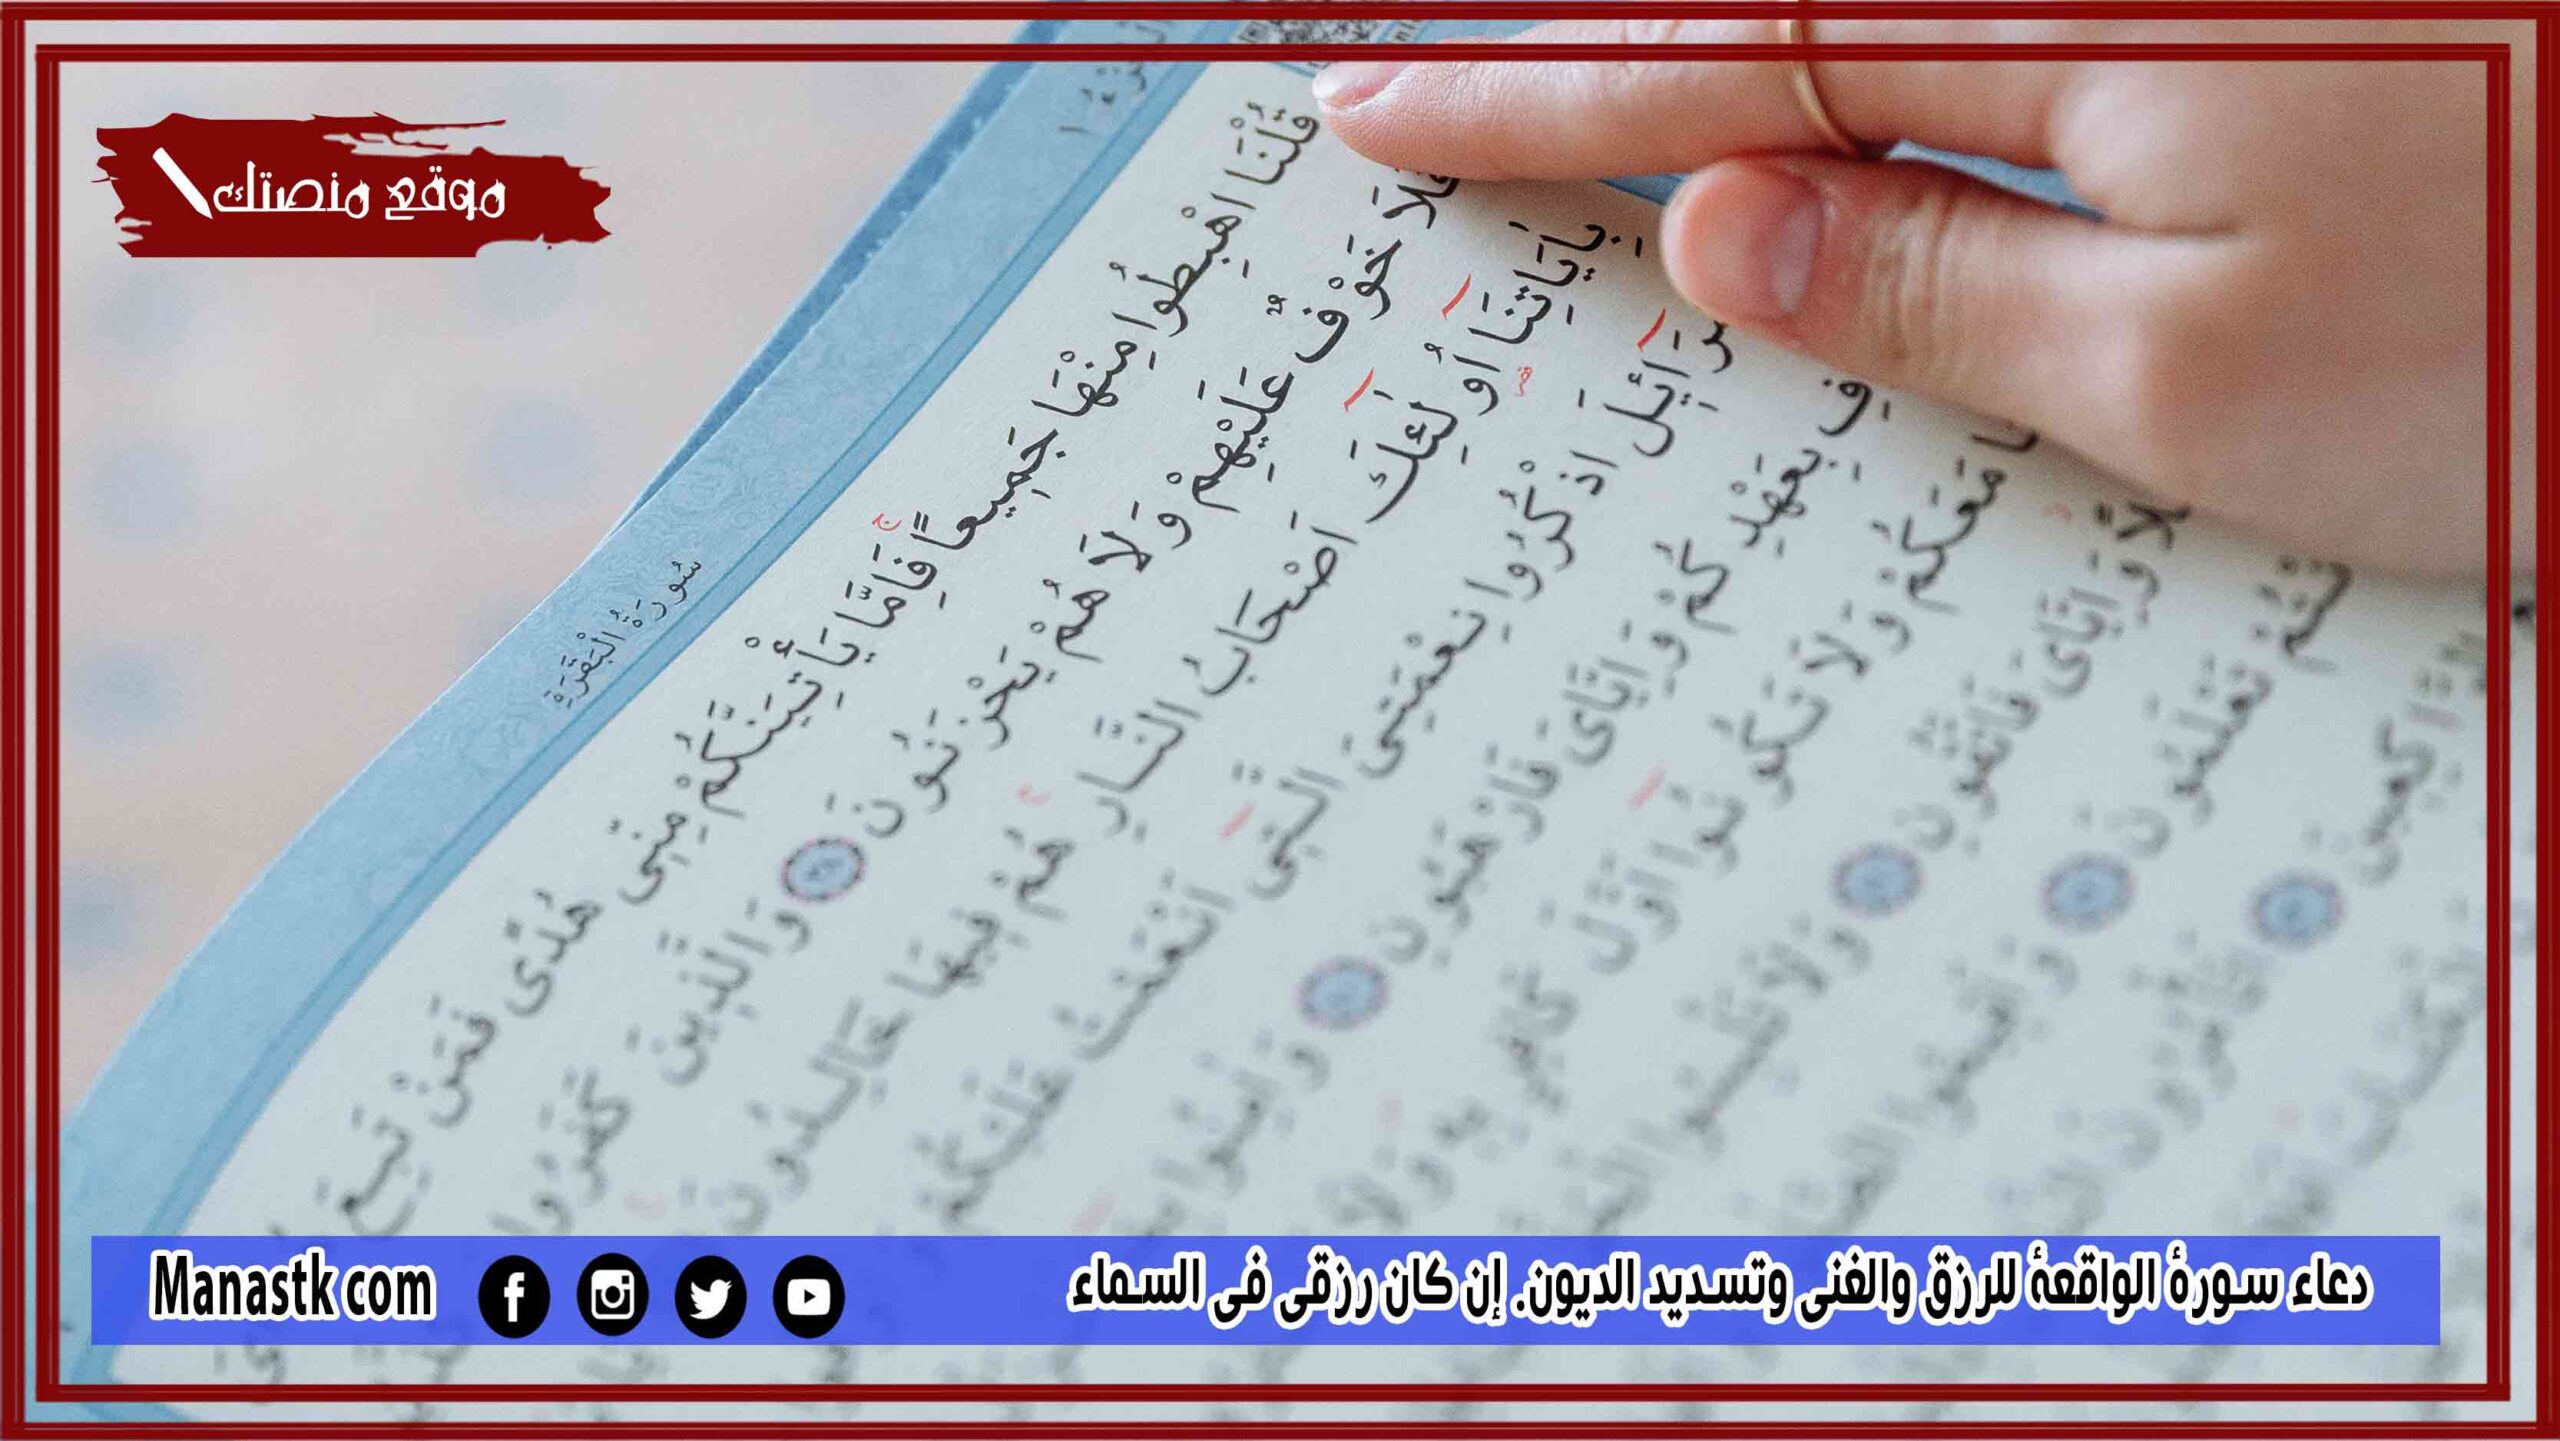 موقع منصتك
الجزء ١
سُورَةُ الْبَقَرَةِ
قُلْنَا اهْبِطُوا مِنْهَا جَمِيعاً فَاِمَّا يَأْتِيَنَّكُمْ مِنّ۪ى هُدًى فَمَنْ تَبِعَ
فَلَا خَوْفٌ عَلَيْهِمْ وَلَا هُمْ يَحْزَنُونَ ٣٨ وَالَّذ۪ينَ كَفَرُوا
بِاٰيَاتِنَا اُولٰئِكَ اَصْحَابُ النَّارِ هُمْ ف۪يهَا خَالِدُونَ
رَائ۪لَ اذْكُرُوا نِعْمَتِىَ الَّت۪ى اَنْعَمْتُ عَلَيْكُمْ
فِ بِعَهْدِكُمْ وَاِيَّاىَ فَارْهَبُونِ وَاٰمِنُوا
مَعَكُمْ وَلَا تَكُونُوا اَوَّلَ كَافِرٍ بِه۪ وَلَا
وَاِيَّاىَ فَاتَّقُونِ وَلَا تَلْبِسُوا
تَعْلَمُونَ وَاَق۪يمُوا
دعاء سورة الواقعة للرزق والغنى وتسديد الديون. إن كان رزقى فى السماء
Manastk com